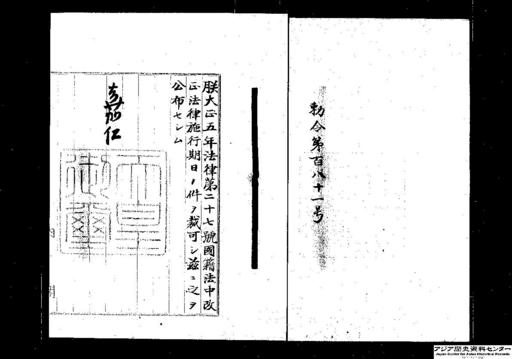 勅令第百八十一号
朕大正五年法律第二十七號國籍法中改
正法律施行期日ノ件ヲ裁可シ茲ニ之ヲ
公布セシム
嘉仁
天皇御璽
アジア歴史資料センター
Japan Center for Asian Historical Records